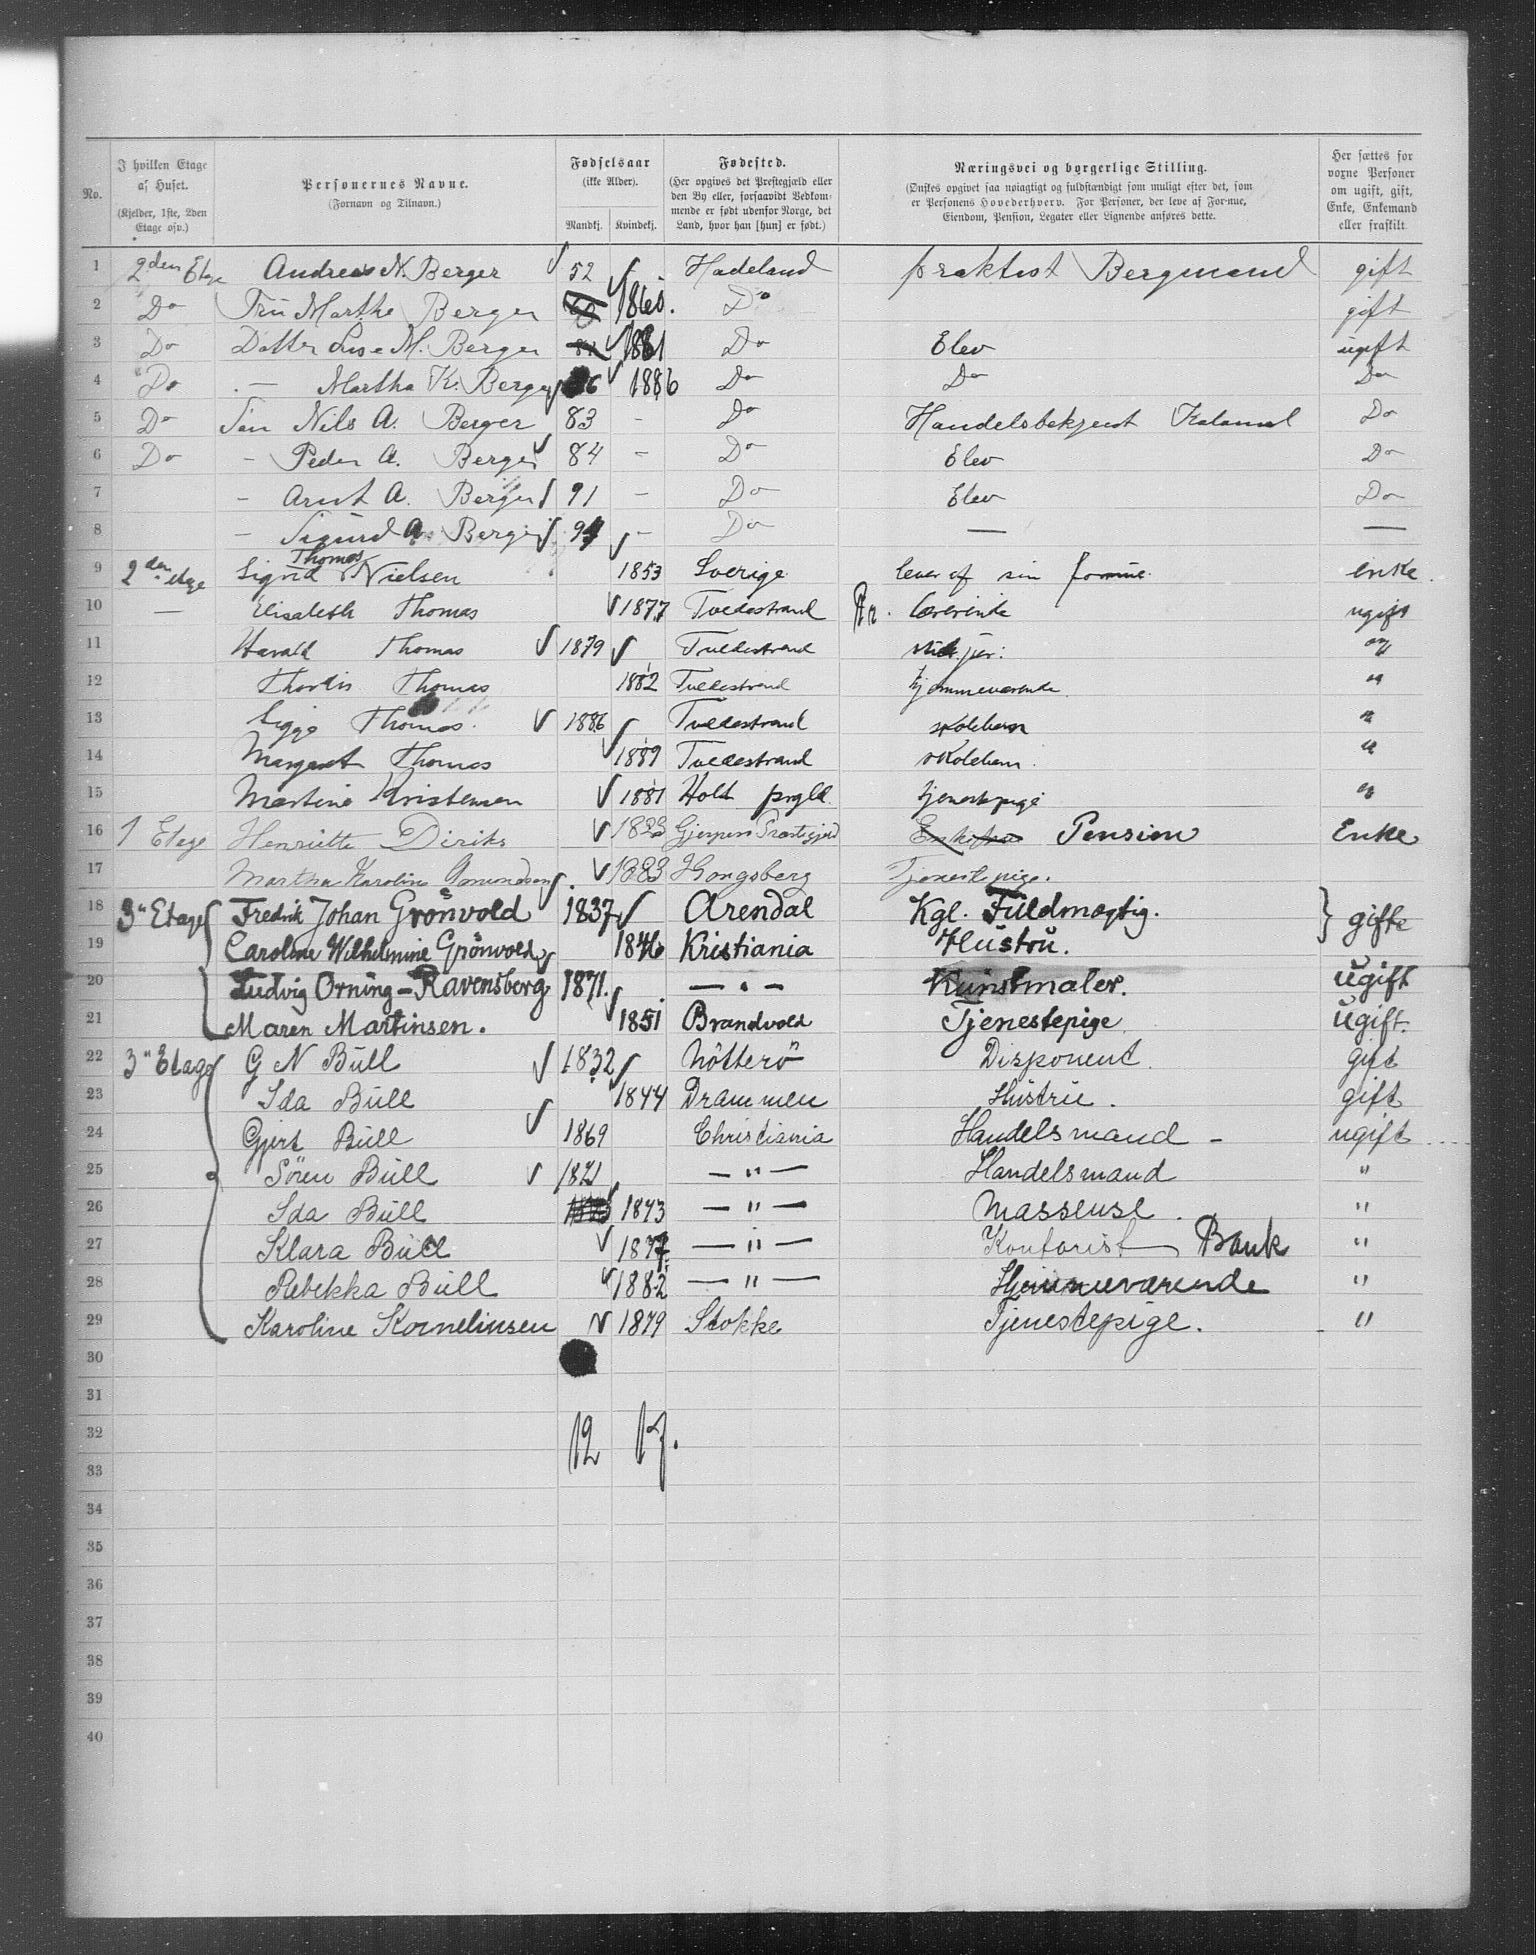 No.	I hvilken Etage af Huset. (Kjelder, 1ste, 2den Etage osv.)	Personernes Navne. (Fornavn og Tilnavn.)	Fødselsaar (ikke Alder). Mandkj. Kvindekj.	Fødested. (Her opgives det Prestegjæld eller den By eller, forsaavidt Vedkommende er født udenfor Norge, det Land, hvor han [hun] er født.)	Næringsvei og borgerlige Stilling. (Ønskes opgivet saa nøiagtigt og fuldstændigt som muligt efter det, som er Personens Hovederhverv. For Personer, der leve af Formue, Eiendom, Pension, Legater eller Lignende anføres dette.	Her sættes for voxne Personer om ugift, gift, Enke, Enkemand eller fraskilt
1 2den Etage Andreas N. Berger 52 Hadeland praktist Bergmand gift
2 Do Fru Marthe Berger 1860. Do gift
3 Do Datter Lise M. Berger 1881 Do Elev ugift
4 Do — Martha K. Berger 1886 Do Do Do
5 Do Søn Nils A. Berger 83 - Do Handelsbetjent Do
6 Do - Peder A. Berger 84 - Do Elev Do
7 - Arnt A. Berger 91 - Do Elev Do
8 - Sigurd A. Berger 94 - Do — —
9 2den etage Sigrid Thomas Nielsen 1853 Sverige lever af sin formue enke.
10 — Elisabeth Thomas 1877 Tvedestrand lærerinde ugift
11 Harald Thomas 1879 Tvedestrand "
12 Thordis Thomas 1882 Tvedestrand hjemmeværende "
13 Sigge Thomas. 1886 Tvedestrand skolebarn "
14 Margaret Thomas 1889 Tvedestrand skolebarn. "
15 Martine Kristensen 1881 Holt prgld. tjenestpige "
16 1 Etage Henriette Diriks 1833 Gjerpens Prestegjeld Pension Enke
17 Martha Karoline Amundsen. 1883 Kongsberg Tjenestepige.
18 3" Etage Fredrik Johan Grönvold 1837 Arendal Kgl. Fuldmægtig. } gifte
19 Caroline Wilhelmine Grönvold 1846 Kristiania Hustru.
20 Ludvig Orning-Ravensberg 1871. — " — Kunstmaler. ugift
21 Maren Martinsen. 1851 Brandvold Tjenestepige ugift.
22 3" Etage G N Bull 1832 Nötterö Disponent gift
23 Ida Bull 1844 Drammen Hustru. gift
24 Gjert Bull 1869 Christiania Handelsmand - ugift
25 Sören Bull 1871 — " — Handelsmand "
26 Ida Bull 1873 — " — Masseuse. "
27 Klara Bull 1877 — " — Kontorist Bank "
28 Rebekka Bull 1882 — " — Hjemmeværende "
29 Karoline Kornelinsen 1879 Stokke Tjenestepige. "
30
31
32 12 17.
33
34
35
36
37
38
39
40